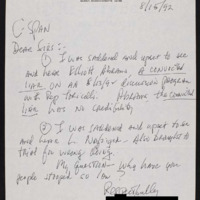 8/15/92
C-SPAN
Dear Sirs:-
① I was saddened and upset to see
and hear Elliott Abrams A CONVICTED
LIAR ON AN 8/13/92 discussion program
with Rep Torricelli. Abrams the convicted
liar was no credibility
② I was saddened and upset to see
and hear L. Nofziger. Also brought to
trial for wrong doing.
My Question - Why have you
people stooped so low?